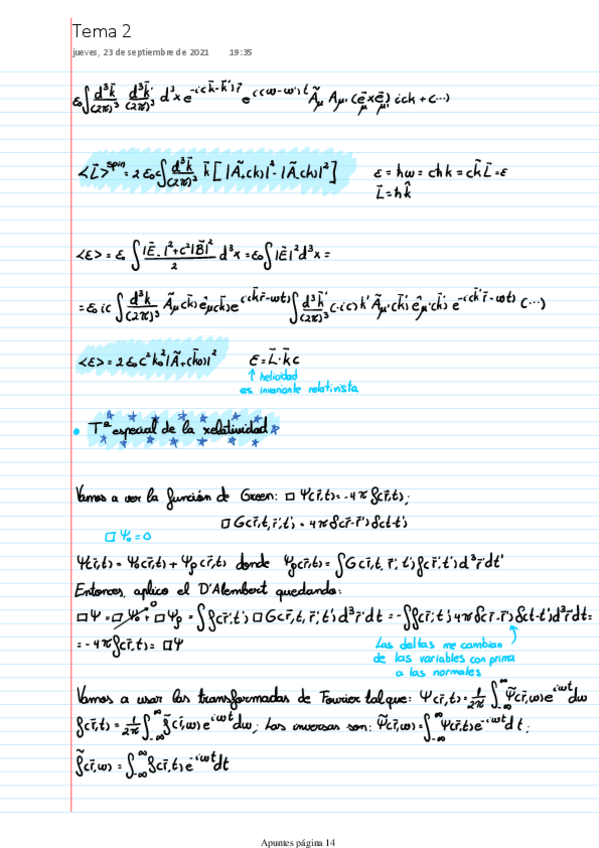 Tema 2
jueves, 23 de septiembre de 2021 19:35
ε₀∫ d³k̄/(2π)³ d³k̄'/(2π)³ d³x e^{-i(k̄-k̄')r̄} e^{i(ω-ω')t} Ã_μ A_μ' (ē_μ x ē_μ') ick + (...)
<L̄>^{spin} = 2ε₀c∫ d³k̄/(2π)³ k̄ [|Ã₊(k)|² - |Ã₋(k)|²] ε = ħω = cħk = ck̄ L̄ = ε
L̄ = ħk̂
<ε> = ε₀ ∫ (|Ē|² + c²|B̄|²)/2 d³x = ε₀∫|Ē|²d³x =
= ε₀ic ∫ d³k̄/(2π)³ Ã_μ(k̄) ê_μ(k̄) e^{i(k̄r̄-ωt)} ∫ d³k̄'/(2π)³ (-ic) k' Ã_μ'(k̄') ê_μ'(k̄') e^{-i(k̄'r̄-ωt)} (...)
<ε> = 2ε₀c²k₀²|Ã₊(k̄₀)|² ε = L̄·k̄c
↑ helicidad
es invariante relativista
• Tª especial de la relatividad
Vamos a ver la función de Green: □ Ψ(r̄,t) = -4πρ(r̄,t);
□ G(r̄,t,r̄',t') = 4πδ(r̄-r̄')δ(t-t')
□ Ψ₀ = 0
Ψ(r̄,t) = Ψ₀(r̄,t) + Ψp(r̄,t) donde Ψp(r̄,t) = ∫G(r̄,t,r̄',t')ρ(r̄',t')d³r̄'dt'
Entonces, aplico el D'Alembert quedando:
□Ψ = □Ψ₀ + □Ψp = ∫ρ(r̄',t')□G(r̄,t,r̄',t')d³r̄'dt = -∫ρ(r̄',t')4πδ(r̄-r̄')δ(t-t')d³r̄'dt =
= -4πρ(r̄,t) = □Ψ
Las deltas me cambian
de las variables con prima
a las normales
Vamos a usar las transformadas de Fourier tal que: Ψ(r̄,t) = 1/2π ∫_{-∞}^{∞} Ψ̃(r̄,ω)e^{iωt}dω
ρ(r̄,t) = 1/2π ∫_{-∞}^{∞} ρ̃(r̄,ω)e^{iωt}dω; Las inversas son: Ψ̃(r̄,ω) = ∫_{-∞}^{∞} Ψ(r̄,t)e^{-iωt}dt;
ρ̃(r̄,ω) = ∫_{-∞}^{∞} ρ(r̄,t)e^{-iωt}dt
Apuntes página 14